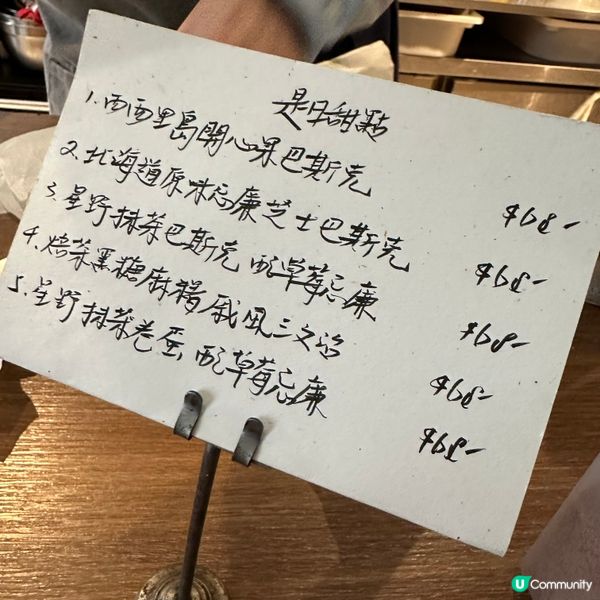 是日甜點
1. 西西里島開心果巴斯克 $68-
2. 北海道原味忌廉芝士巴斯克 $68-
3. 星野抹茶巴斯克 配草莓忌廉 $68-
4. 焙茶黑糖麻糬戚風三文治 $68-
5. 星野抹茶卷蛋 配草莓忌廉 $68-
U Community